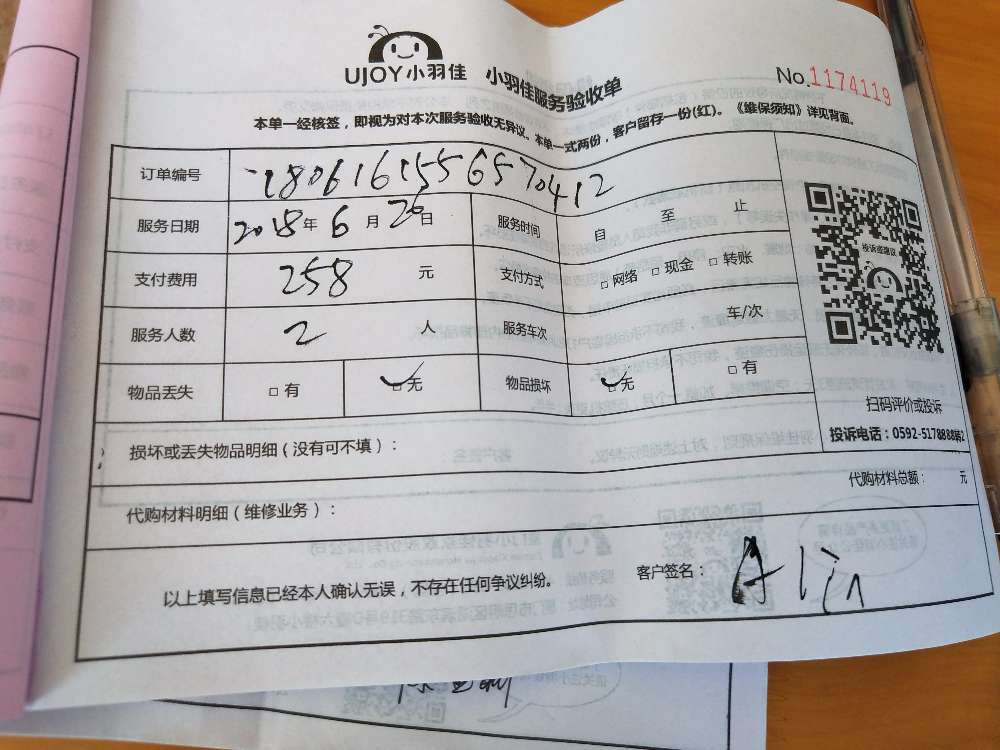 UJOY小羽佳 小羽佳服务验收单 No.1174119
本单一经核签，即视为对本次服务验收无异议。本单一式两份，客户留存一份(红)。《维保须知》详见背面。
订单编号 1806161556570412
服务日期 2018年 6 月 20 日 服务时间 自 至 止
支付费用 258 元 支付方式 □ 网络 □ 现金 □ 转账
服务人数 2 人 服务车次 车/次
物品丢失 □ 有 □ 无 物品损坏 □ 无 □ 有
投诉或建议
扫码评价或投诉
投诉电话：0592-5178888转2
损坏或丢失物品明细（没有可不填）：
代购材料明细（维修业务）： 代购材料总额： 元
以上填写信息已经本人确认无误，不存在任何争议纠纷。 客户签名：